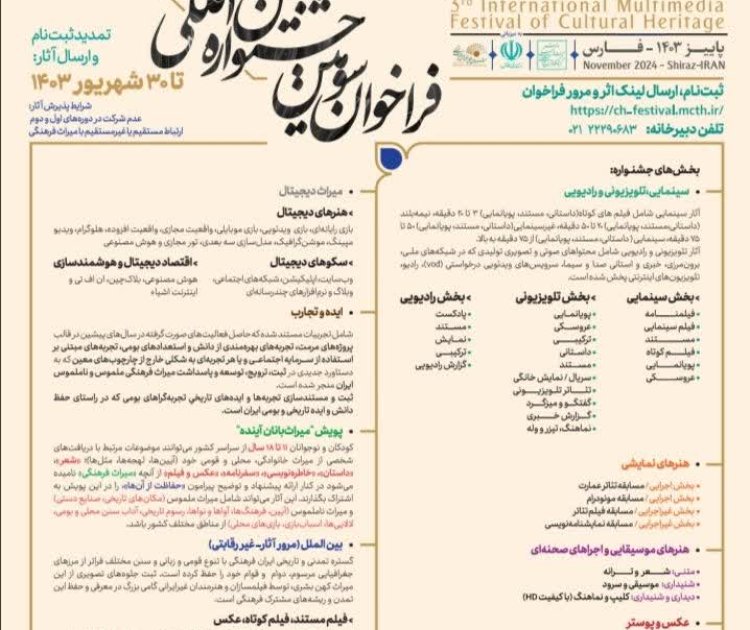 3rd International Multimedia
Festival of Cultural Heritage
پاییز ۱۴۰۳ - فارس
November 2024 - Shiraz-IRAN
فراخوان سومین
جشنواره
تمدید ثبت نام
و ارسال آثار:
تا ۳۰ شهریور ۱۴۰۳
شرایط پذیرش آثار:
عدم شرکت در دوره‌های اول و دوم
ارتباط مستقیم یا غیرمستقیم با میراث فرهنگی
ثبت‌نام، ارسال لینک اثر و مرور فراخوان
https://ch-festival.mcth.ir/
تلفن دبیرخانه: ۲۲۲۹۰۶۸۳ ۰۲۱
بخش‌های جشنواره:
• سینمایی، تلویزیونی و رادیویی
آثار سینمایی شامل فیلم های کوتاه(داستانی، مستند، پویانمایی) ۳ تا ۲۰ دقیقه، نیمه‌بلند
(داستانی،مستند، پویانمایی) ۲۰ تا ۵۰ دقیقه، غیرسینمایی(داستانی، مستند، پویانمایی) ۵۰ تا
۷۵ دقیقه، سینمایی (داستانی،مستند، پویانمایی) از ۷۵ دقیقه به بالا.
آثار تلویزیونی و رادیویی شامل محتواهای صوتی و تصویری تولیدی که در شبکه‌های ملی،
برون‌مرزی، خبری و استانی صدا و سیما، سرویس‌های ویدئویی درخواستی (vod)، رادیو،
تلویزیون‌های اینترنتی پخش شده است.
› بخش سینمایی
• فیلمنامه
• فیلم سینمایی
• مستند
• فیلم کوتاه
• پویانمایی
• عروسکی
› بخش تلویزیونی
• پویانمایی
• عروسکی
• ترکیبی
• داستانی
• مستند
• سریال / نمایش خانگی
• تئاتر تلویزیونی
• گفتگو و میزگرد
• گزارش خبری
• نماهنگ، تیزر و وله
› بخش رادیویی
• پادکست
• مستند
• نمایش
• ترکیبی
• گزارش رادیویی
• هنرهای نمایشی
• بخش اجرایی / مسابقه تئاتر عمارت
• بخش اجرایی / مسابقه مونودرام
• بخش غیراجرایی / مسابقه فیلم تئاتر
• بخش غیراجرایی / مسابقه نمایشنامه‌نویسی
• هنرهای موسیقایی و اجراهای صحنه‌ای
• متنی: شعر و ترانه
• شنیداری: موسیقی و سرود
• دیداری و شنیداری: کلیپ و نماهنگ (با کیفیت HD)
• عکس و پوستر
• میراث دیجیتال
› هنرهای دیجیتال
بازی رایانه‌ای، بازی ویدئویی، بازی موبایلی، واقعیت مجازی، واقعیت افزوده، هلوگرام، ویدیو
مپینگ، موشن‌گرافیک، مدل‌سازی سه بعدی، تور مجازی و هوش مصنوعی
› سکوهای دیجیتال
وب‌سایت، اپلیکیشن، شبکه‌های اجتماعی،
وبلاگ و نرم‌افزارهای چندرسانه‌ای
› اقتصاد دیجیتال و هوشمندسازی
هوش مصنوعی، بلاک‌چین، ان اف تی و
اینترنت اشیاء
• ایده و تجارب
شامل تجربیات مستند شده که حاصل فعالیت‌های صورت گرفته در سال‌های پیشین در قالب
پروژه‌های مرمت، تجربه‌های بهره‌مندی از دانش و استعدادهای بومی، تجربه‌های مبتنی بر
استفاده از سرمایه اجتماعی و یا هر تجربه‌ای به شکلی خارج از چارچوب‌های معین که به
دستاورد جدیدی در ثبت، ترویج، توسعه و پاسداشت میراث فرهنگی ملموس و ناملموس
ایران منجر شده است.
ثبت و مستندسازی تجربه‌ها و ایده‌های تاریخی تجربه‌گراهای بومی که در راستای حفظ
دانش و ایده تاریخی و بومی ایران است.
• پویش "میراث‌بانان آینده"
کودکان و نوجوانان ۱۱ تا ۱۸ سال از سراسر کشور می‌توانند موضوعات مرتبط با دریافت‌های
شخصی از میراث خانوادگی، محلی و قومی خود (آیین‌ها، لهجه‌ها، مثل‌ها)؛ «شعر»،
«داستان»، «خاطره‌نویسی»، «سفرنامه»، «عکس و فیلم» از آنچه «میراث فرهنگی» نامیده
می‌شود در کنار ارائه پیشنهاد و توضیح پیرامون «حفاظت از آن‌ها»، را در این پویش به
اشتراک بگذارند. این آثار می‌تواند شامل میراث ملموس (مکان‌های تاریخی، صنایع دستی)
و میراث ناملموس (آیین، فرهنگ‌ها، آواها و نواها، رسوم تاریخی، آداب سنن محلی و بومی،
لالایی‌ها، اسباب‌بازی، بازی‌های محلی) از مناطق مختلف کشور باشد.
• بین الملل (مرور آثار- غیر رقابتی)
گستره تمدنی و تاریخی ایران فرهنگی با تنوع قومی و زبانی و سنن مختلف فراتر از مرزهای
جغرافیایی مرسوم، دوام و قوام خود را حفظ کرده است. ثبت جلوه‌های تصویری از این
میراث کهن بشری، توسط فیلمسازان و هنرمندان غیرایرانی گامی بزرگ در معرفی و حفظ این
تمدن و ریشه‌های مشترک فرهنگی است.
› فیلم مستند، فیلم کوتاه، عکس